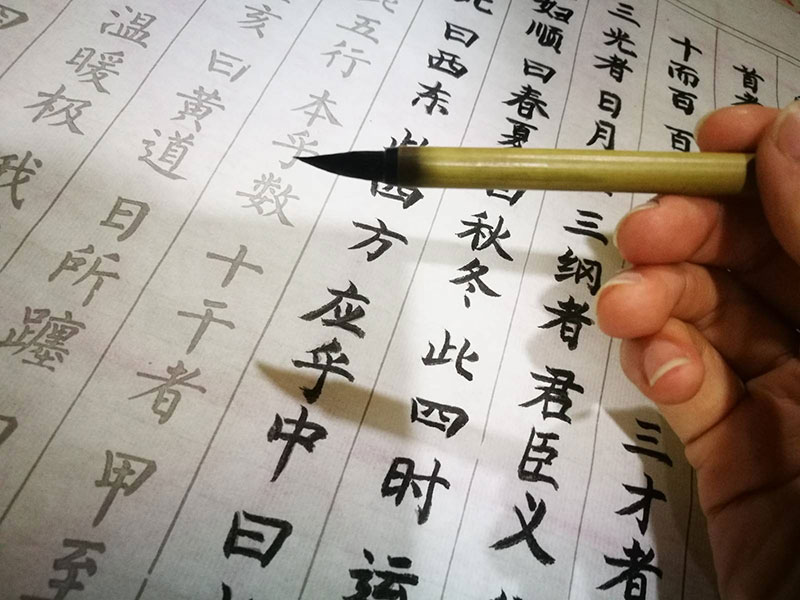 首孝
十而百 百 三才者
三光者 日月 三纲者 君臣义
妇顺 曰春夏 曰秋冬 此四时 运
曰西东 此四方 应乎中 曰
此五行 本乎数 十干者 甲至
亥 曰黄道 日所躔
温暖极 我